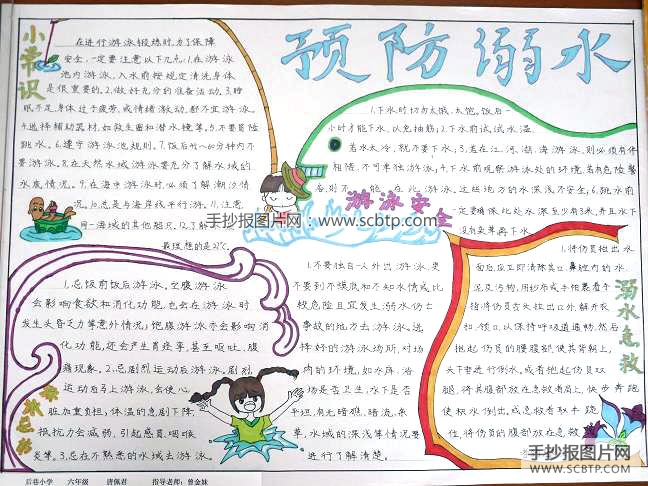 预防溺水
小常识
在进行游泳锻炼时,为了保障
安全,一定要注意以下九点:1.在游泳
池内游泳,入水前按规定清洗身体
是很重要的。2.做好充分的准备活动。3.睡
眠不足,身体过于疲劳,或情绪激动,都不宜游泳。
4.选择辅助器材,如救生圈和潜水镜等。5.不要冒险
跳水。6.遵守游泳池规则。7.饭后
要游泳。8.在天然水域游泳要充分了解水域的
水底情况。9.在海中游泳时,必须了解潮汐情
况。10.总是与海岸线平行游。11.注意
同一海域的其他船只。12.了解
最理想的是27℃。
1.下水时切勿太饿、太饱。饭后一
小时才能下水,以免抽筋;2.下水前试试水温,
若水太冷,就不要下水;3.若在江、河、湖、海游泳,则必须有伴
相陪,不可单独游泳;4.下水前观察游泳处的环境,若有危险警
告,则不能在此游泳;5.
地方的水深浅不安全;6.跳水前
一定要确保此处水深至少有3米,并且水下
没有杂草
游泳安全
手抄报图片网:www.scbtp.com
1.忌饭前饭后游泳。空腹游泳
会影响食欲和消化功能,也会在游泳时
发生头昏乏力等意外情况;饱腹游泳亦会影响消
化功能,还会产生胃痉挛,甚至呕吐、腹
痛现象。2.忌剧烈运动后游泳。剧烈
运动后马上游泳,会使心
脏加重负担;体温的急剧下降,
抵抗力会减弱,引起感冒、咽喉
炎等。3.忌在不熟悉的水域去游泳。
1.不要独自一人外出游泳,更
要到不摸底和不知水情或比
较危险且宜发生溺水伤亡
事故的地方去游泳。选
择好的游泳场所,对场
内的环境,如水库、浴
场是否卫生,水下是否
平坦,有无暗礁、暗流、杂
草,水域的深浅等情况要
进行了解清楚。
溺水急救
1.将伤员抬出水
面后,应立即清除其口、鼻腔内的水、
泥及污物,用纱布或手帕裹着手
指将伤员舌头拉出口外,解开衣
扣、领口,以保持呼吸道通畅,然后
抱起伤员的腰腹部,使其背朝上、
头下垂进行倒水。或者抱起伤员双
腿,将其腹部放在急救者肩上,快步奔跑
使积水倒出。或急救者取半跪
位,将伤员的腹部放在急救
后巷小学 六年级 唐佩君 指导老师:曾金妹
手抄报图片网
WWW.SCBTP.COM